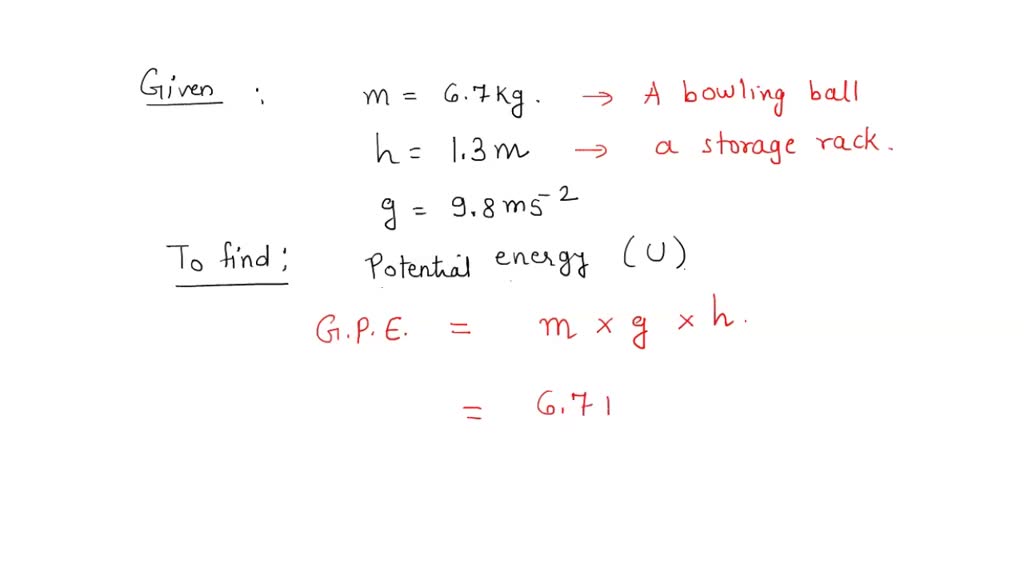 Given : m = 6.7kg. → A bowling ball
h = 1.3m → a storage rack.
g = 9.8ms⁻²
To find: Potential energy (U)
G.P.E. = m × g × h.
= 6.71